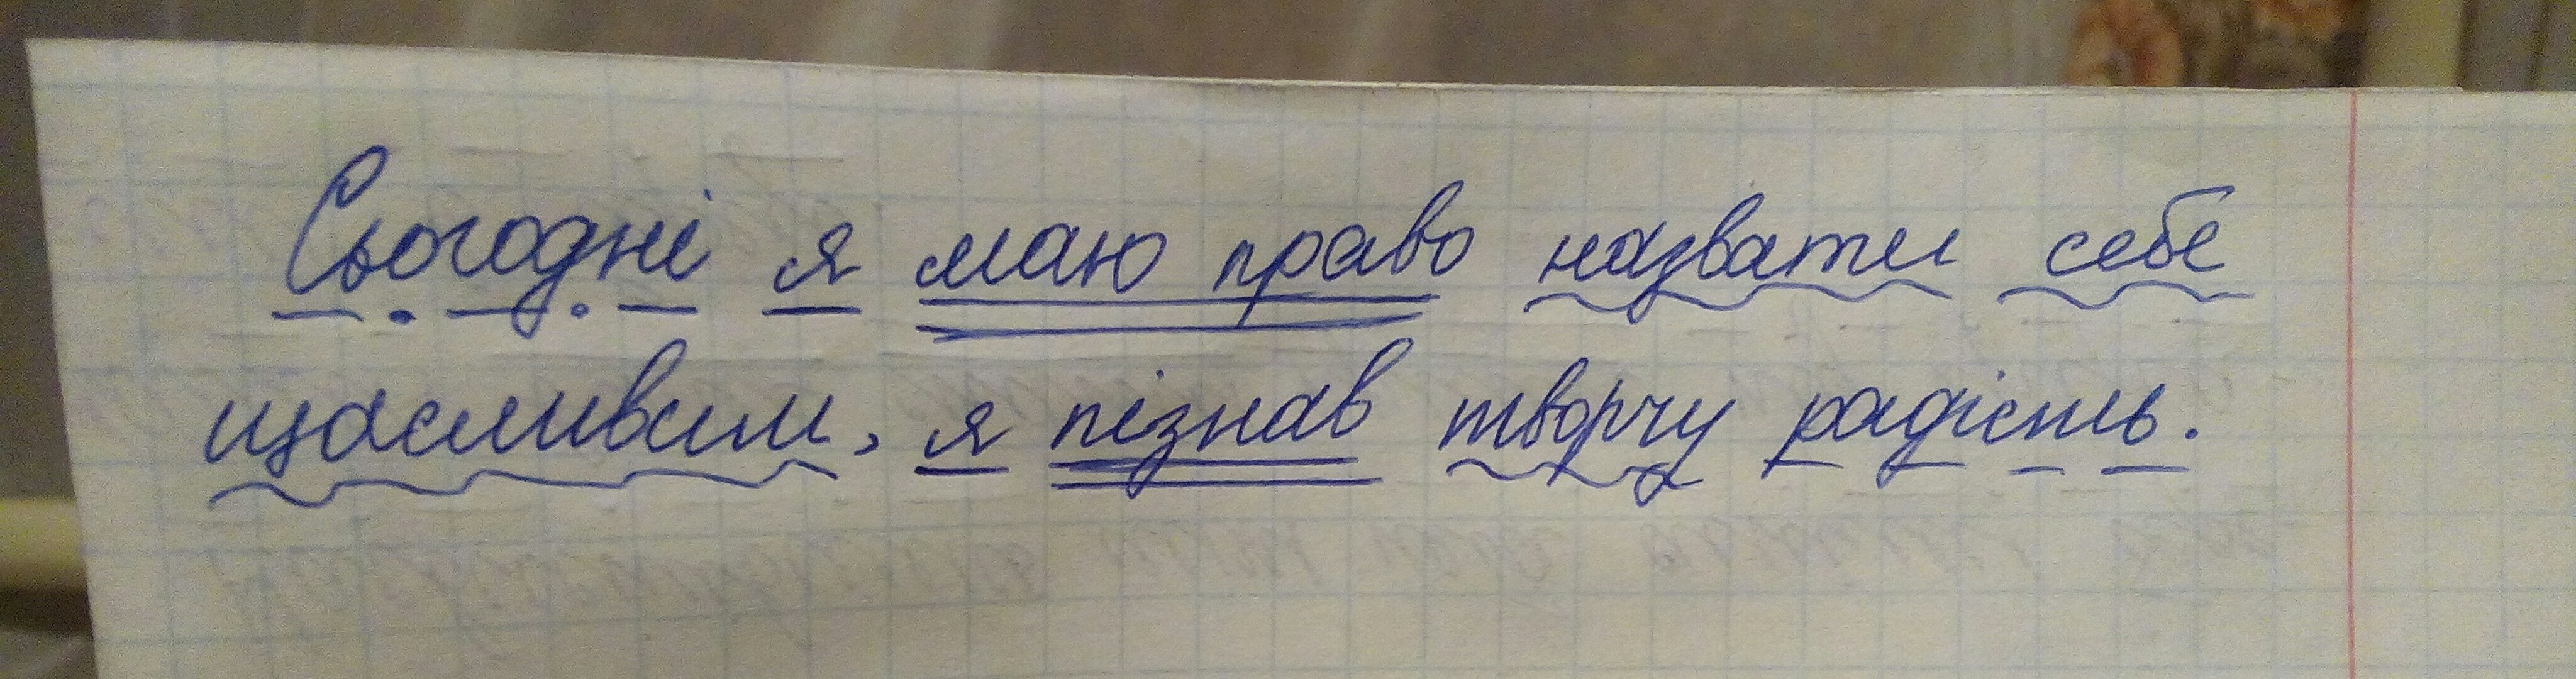 Сьогодні я маю право назвати себе
щасливим, я пізнав творчу радість.